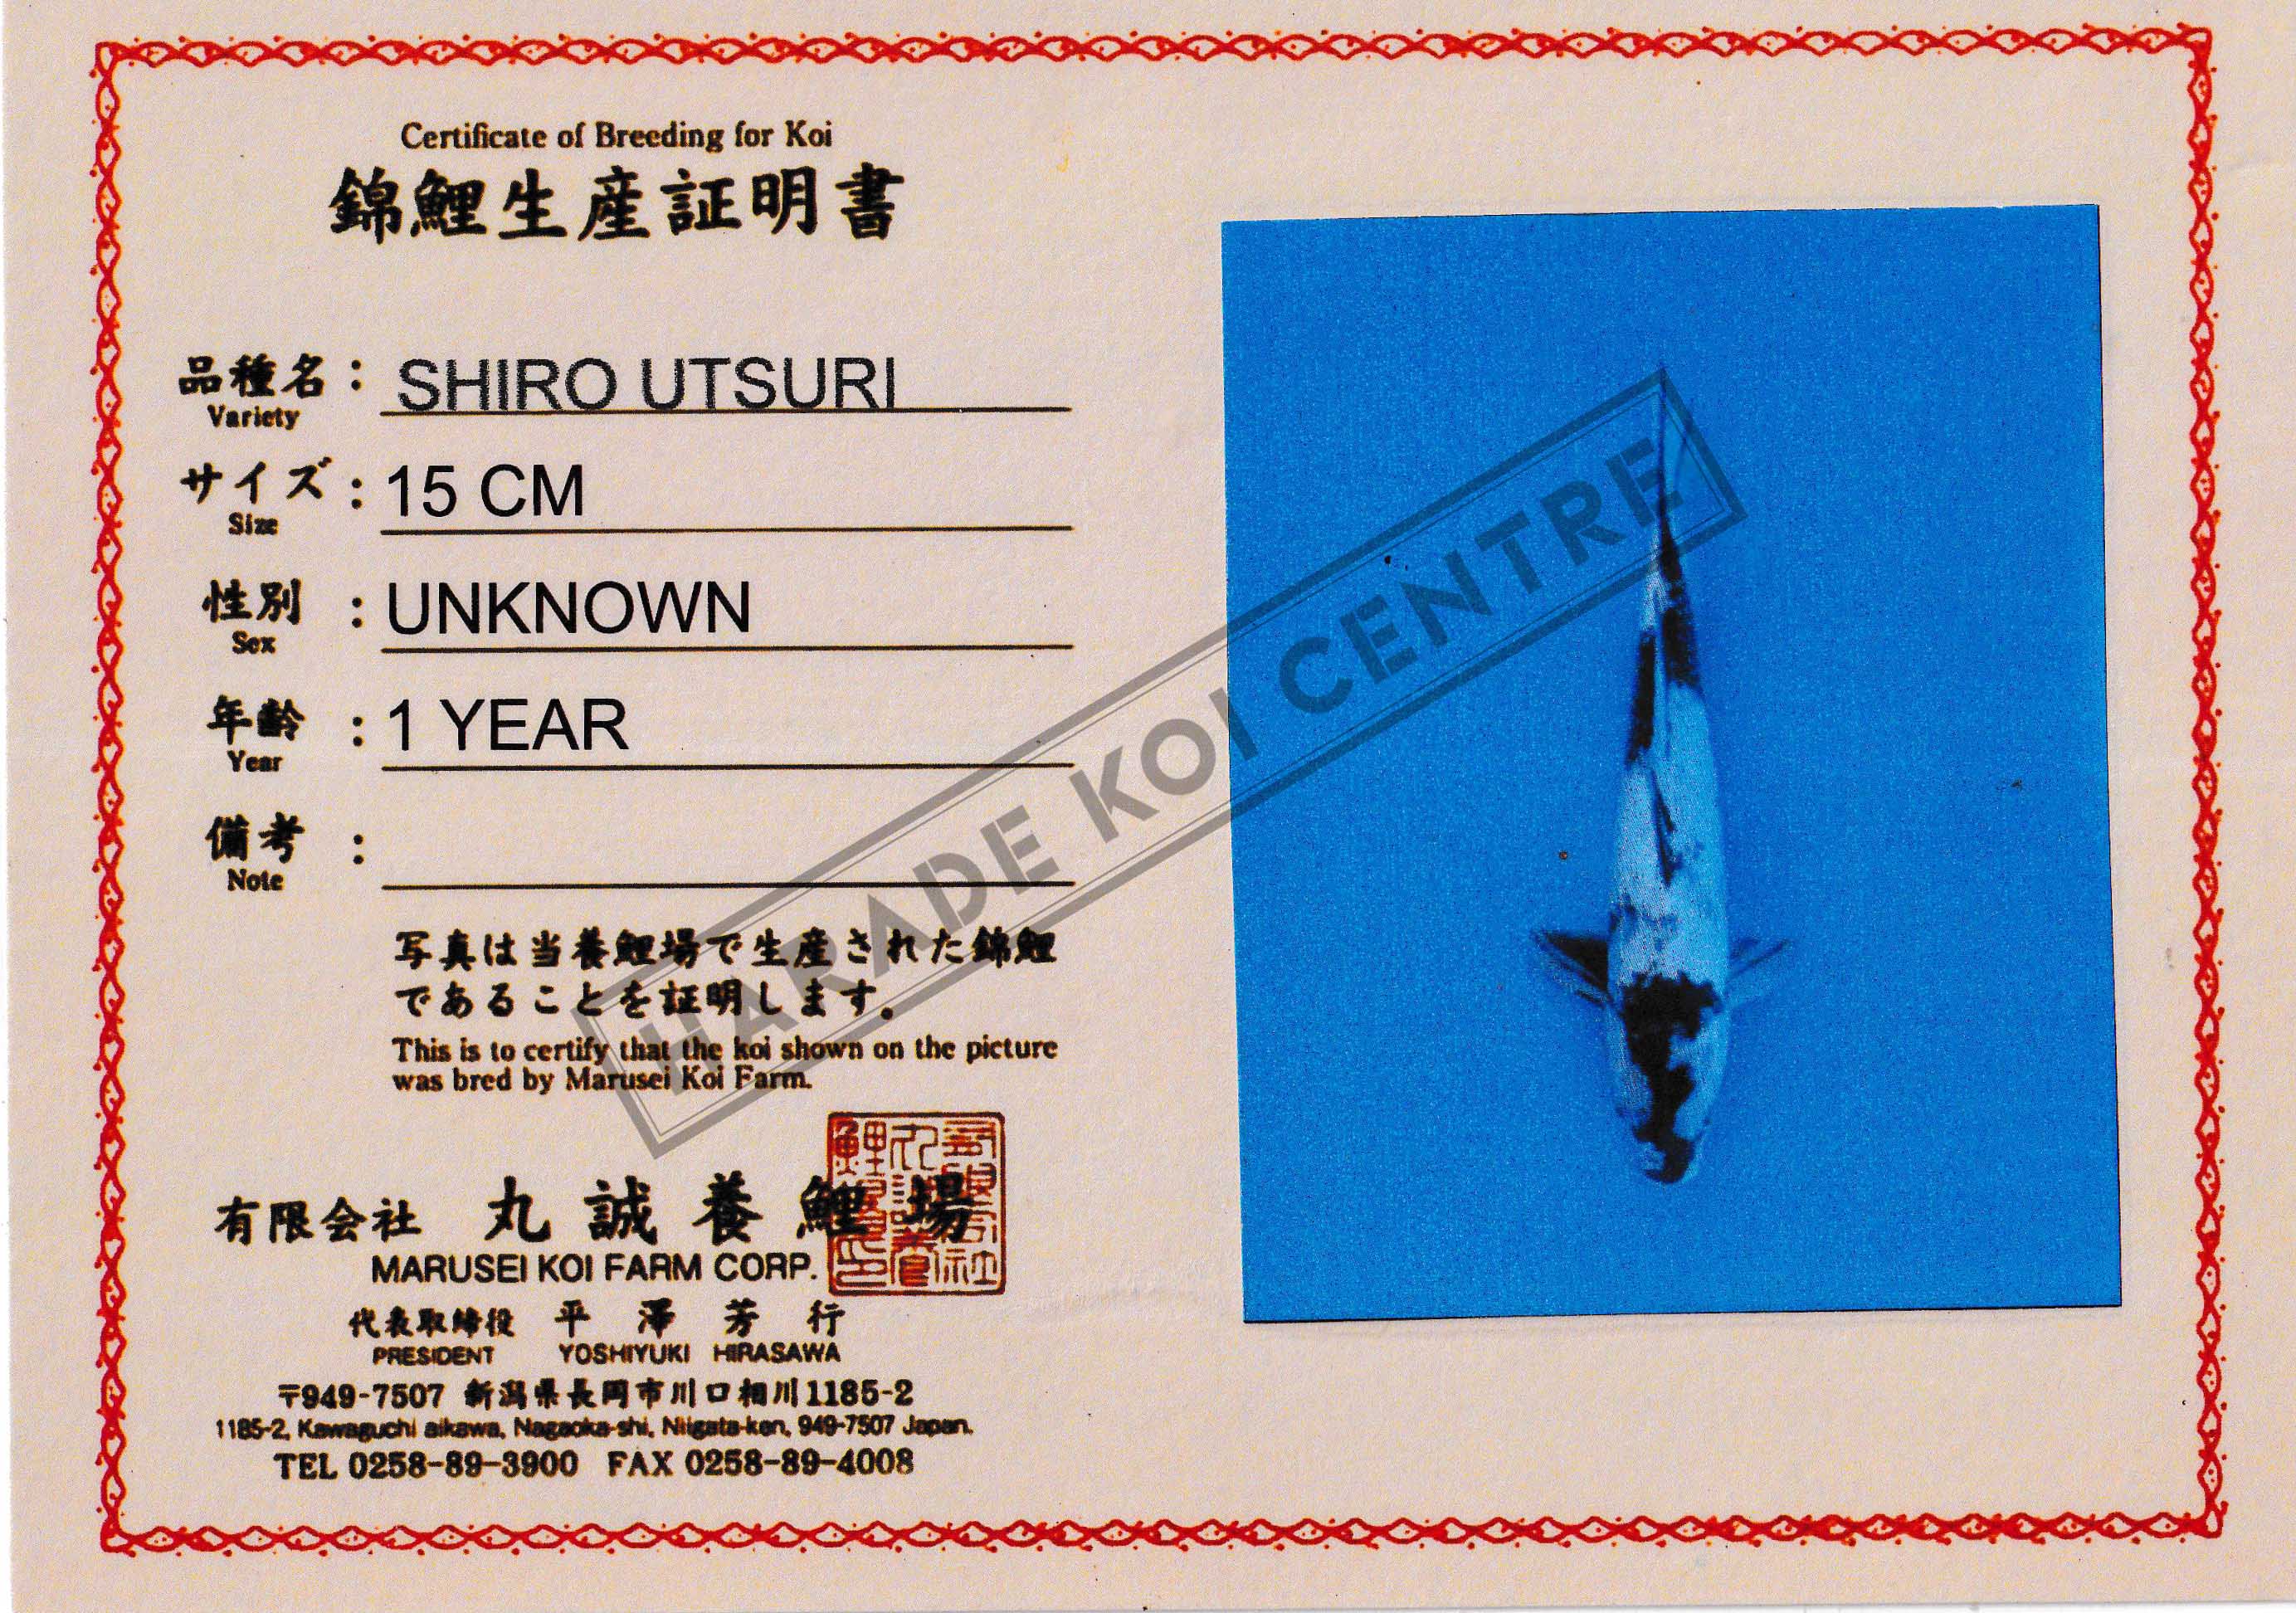 Certificate of Breeding for Koi
錦鯉生産証明書
品種名 : SHIRO UTSURI
Variety
サイズ : 15 CM
Size
性別 : UNKNOWN
Sex
年齢 : 1 YEAR
Year
備考 :
Note
写真は当養鯉場で生産された錦鯉
であることを証明します。
This is to certify that the koi shown on the picture
was bred by Marusei Koi Farm.
有限会社 丸誠養鯉場
MARUSEI KOI FARM CORP.
代表取締役 平澤芳行
PRESIDENT YOSHIYUKI HIRASAWA
〒949-7507 新潟県長岡市川口相川1185-2
1185-2, Kawaguchi aikawa, Nagaoka-shi, Niigata-ken, 949-7507 Japan.
TEL 0258-89-3900 FAX 0258-89-4008
HARADE KOI CENTRE